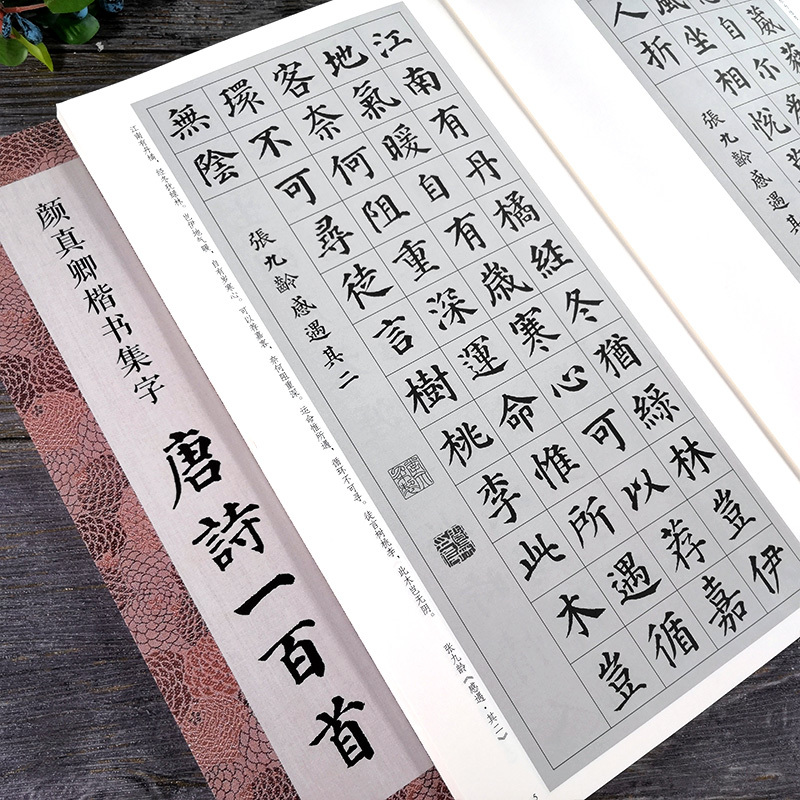 颜真卿楷书集字
唐詩一百首
江南有丹橘經冬猶綠林豈伊
地氣暖自有歲寒心可以荐嘉
客奈何阻重深運命惟所遇循
環不可尋徒言樹桃李此木豈
無陰
張九齡感遇其二
江南有丹橘，经冬犹绿林。岂伊地气暖，自有岁寒心。可以荐嘉客，奈何阻重深。运命惟所遇，循环不可寻。徒言树桃李，此木岂无阴。
张九龄《感遇·其二》
5
葳
自尔
風坐相悦
人折
張九齡感遇其